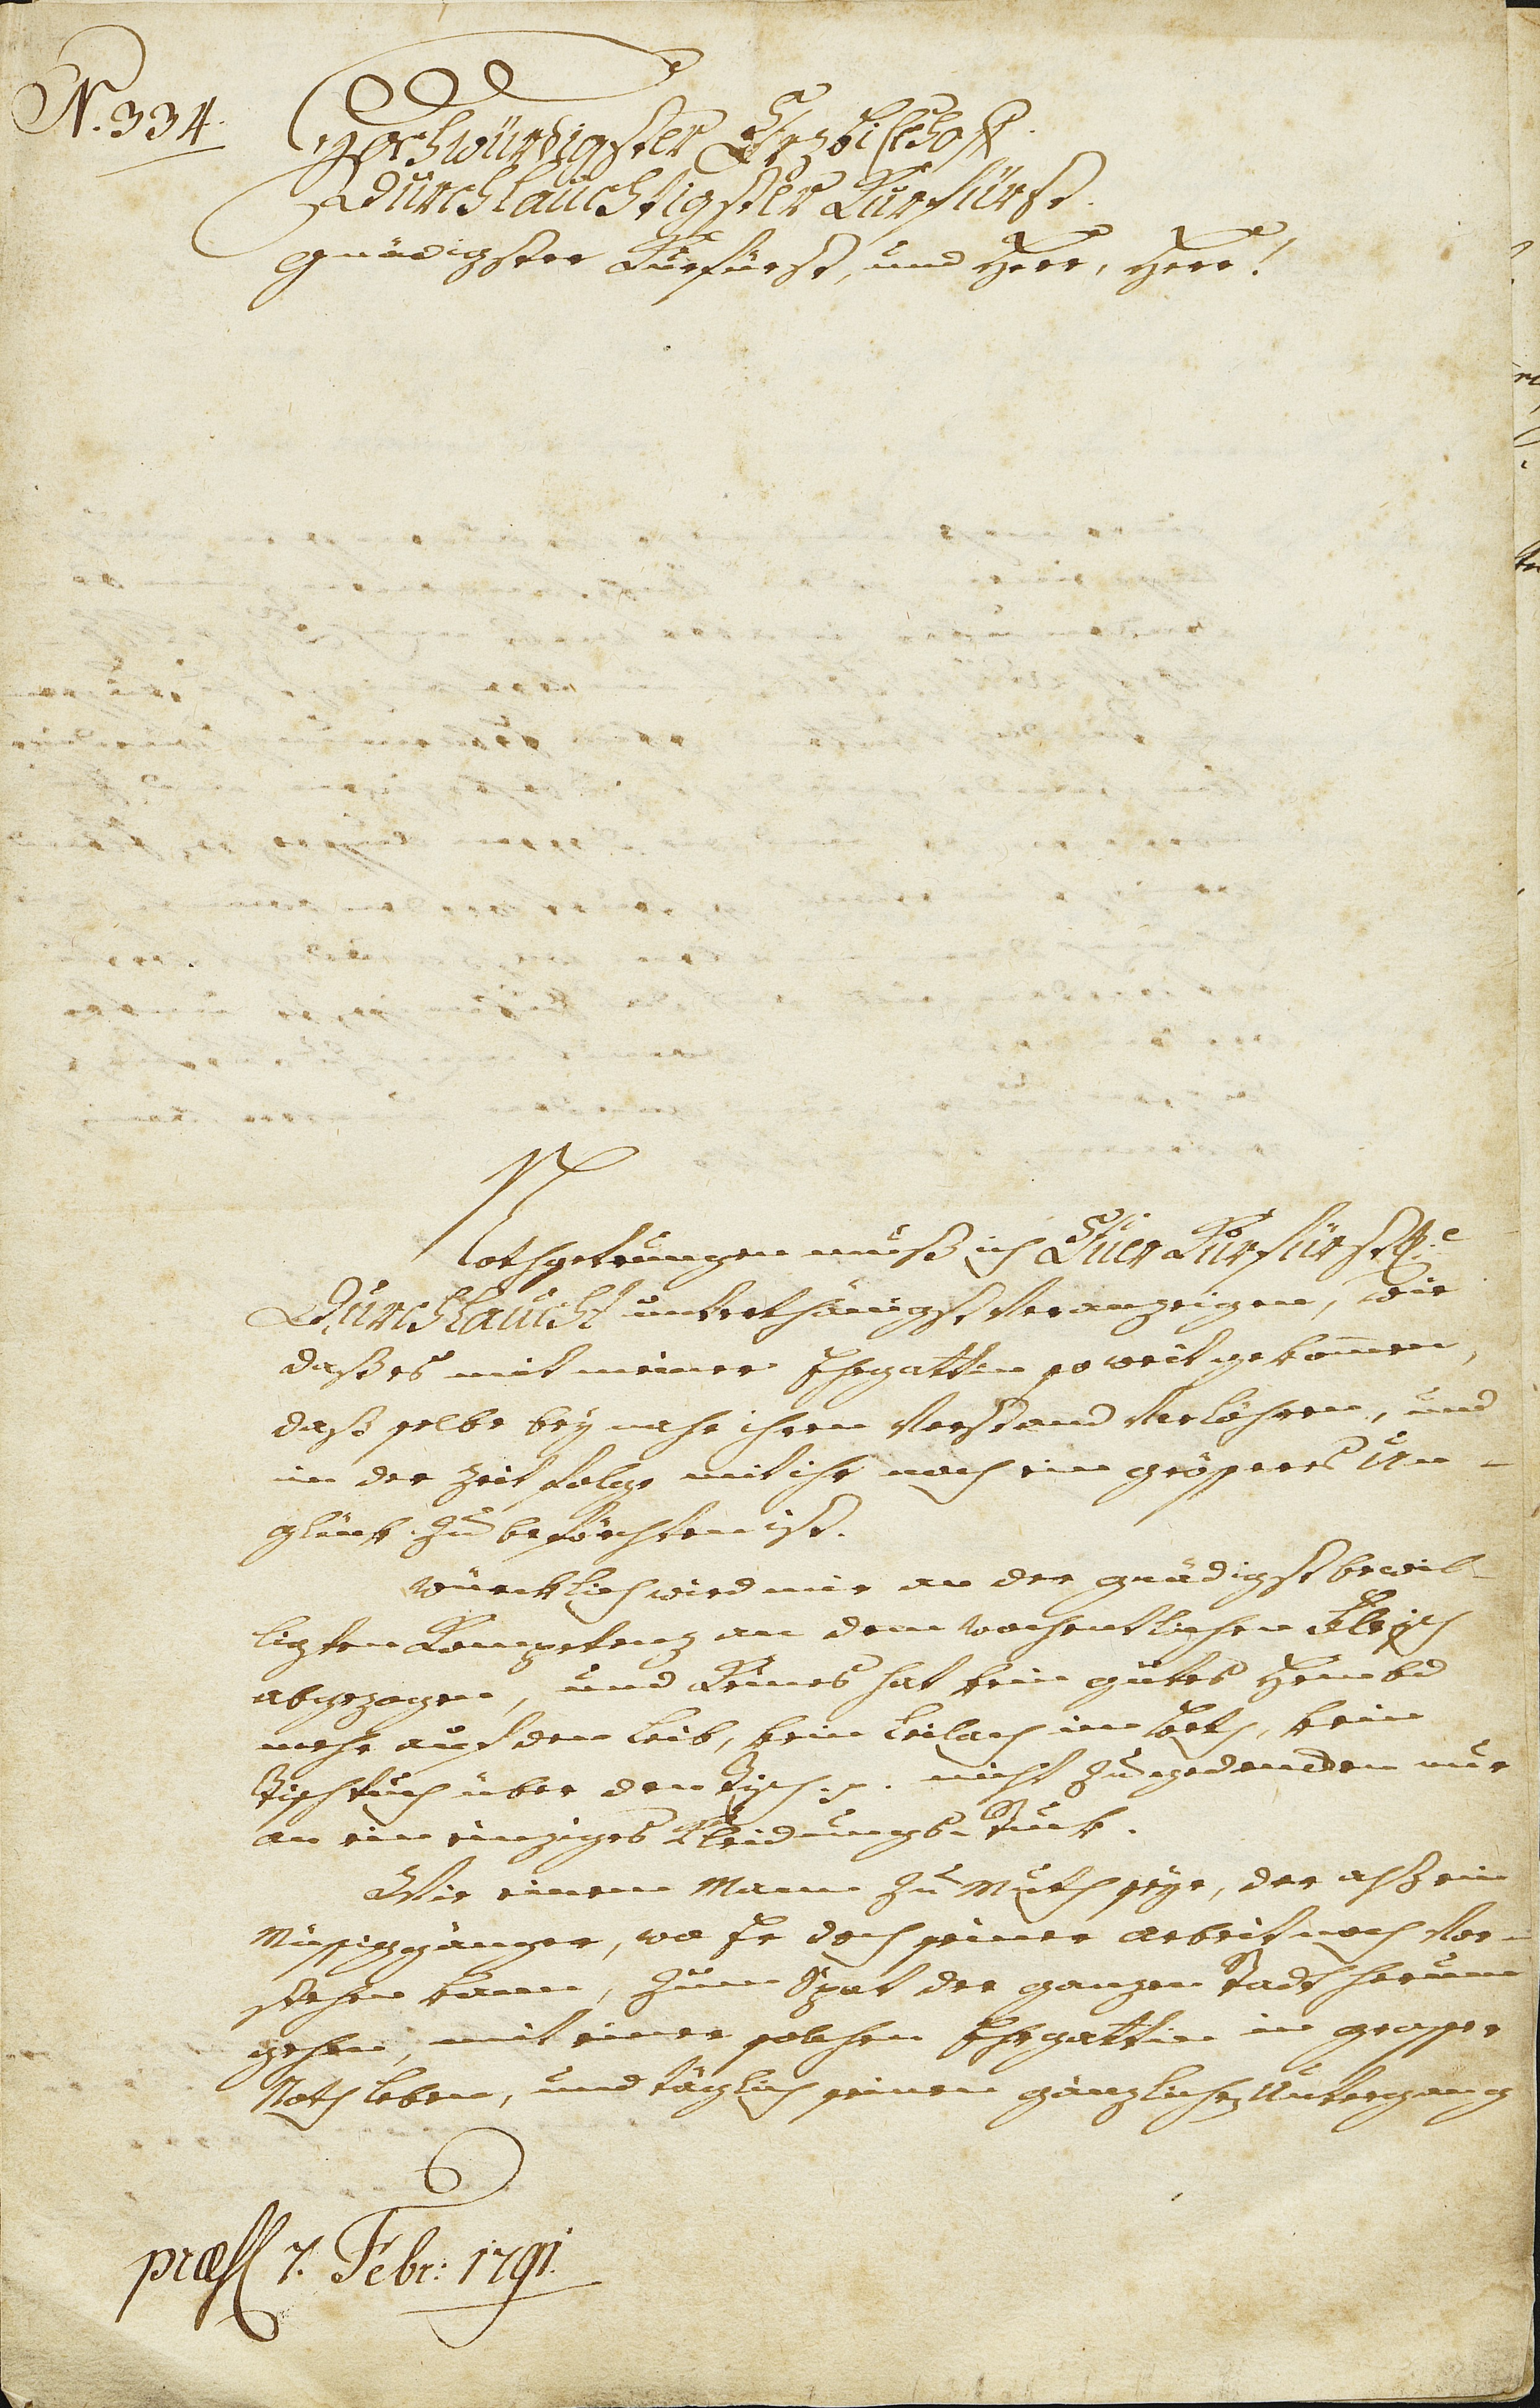 N. 334.
Hochwürdigster Erzbischof
Durchlauchtigster Kurfürst
gnädigster Kurfürst, und Herr, Herr!
Nothgedrungen muß ich Euer Kurfürstl:e
Durchlaucht unterthänigst veranzeigen, wie
daß es mit meiner Ehegattin so weit gekommen,
daß selbe bey nahe ihren Verstand verlohren, und
in der Zeit folge mit ihr noch ein größeres Un-
glück zu beförchten ist.
Würcklich wird mir an der gnädigst bewil-
ligten Kompetenz an dem wochentlichen Fleisch
abgezogen, und Keines hat kein gutes Hembd
mehr auf den Leib, kein Leilach im Beth, kein
Tischtuch über den Tisch nicht zu gedencken nur
an ein einziges Kleidungs-Stück.
Wie einem Mann zu Muth seye, der alß ein
Müßiggänger, wo Er doch seiner arbeit noch vor-
stehen kann, zum Spot der ganzen Stadt herum
gehen, mit einer solchen Ehegattin in grosser
Noth leben, und täglich seinen gänzlichen Untergang
præs 7. Febr: 1791.